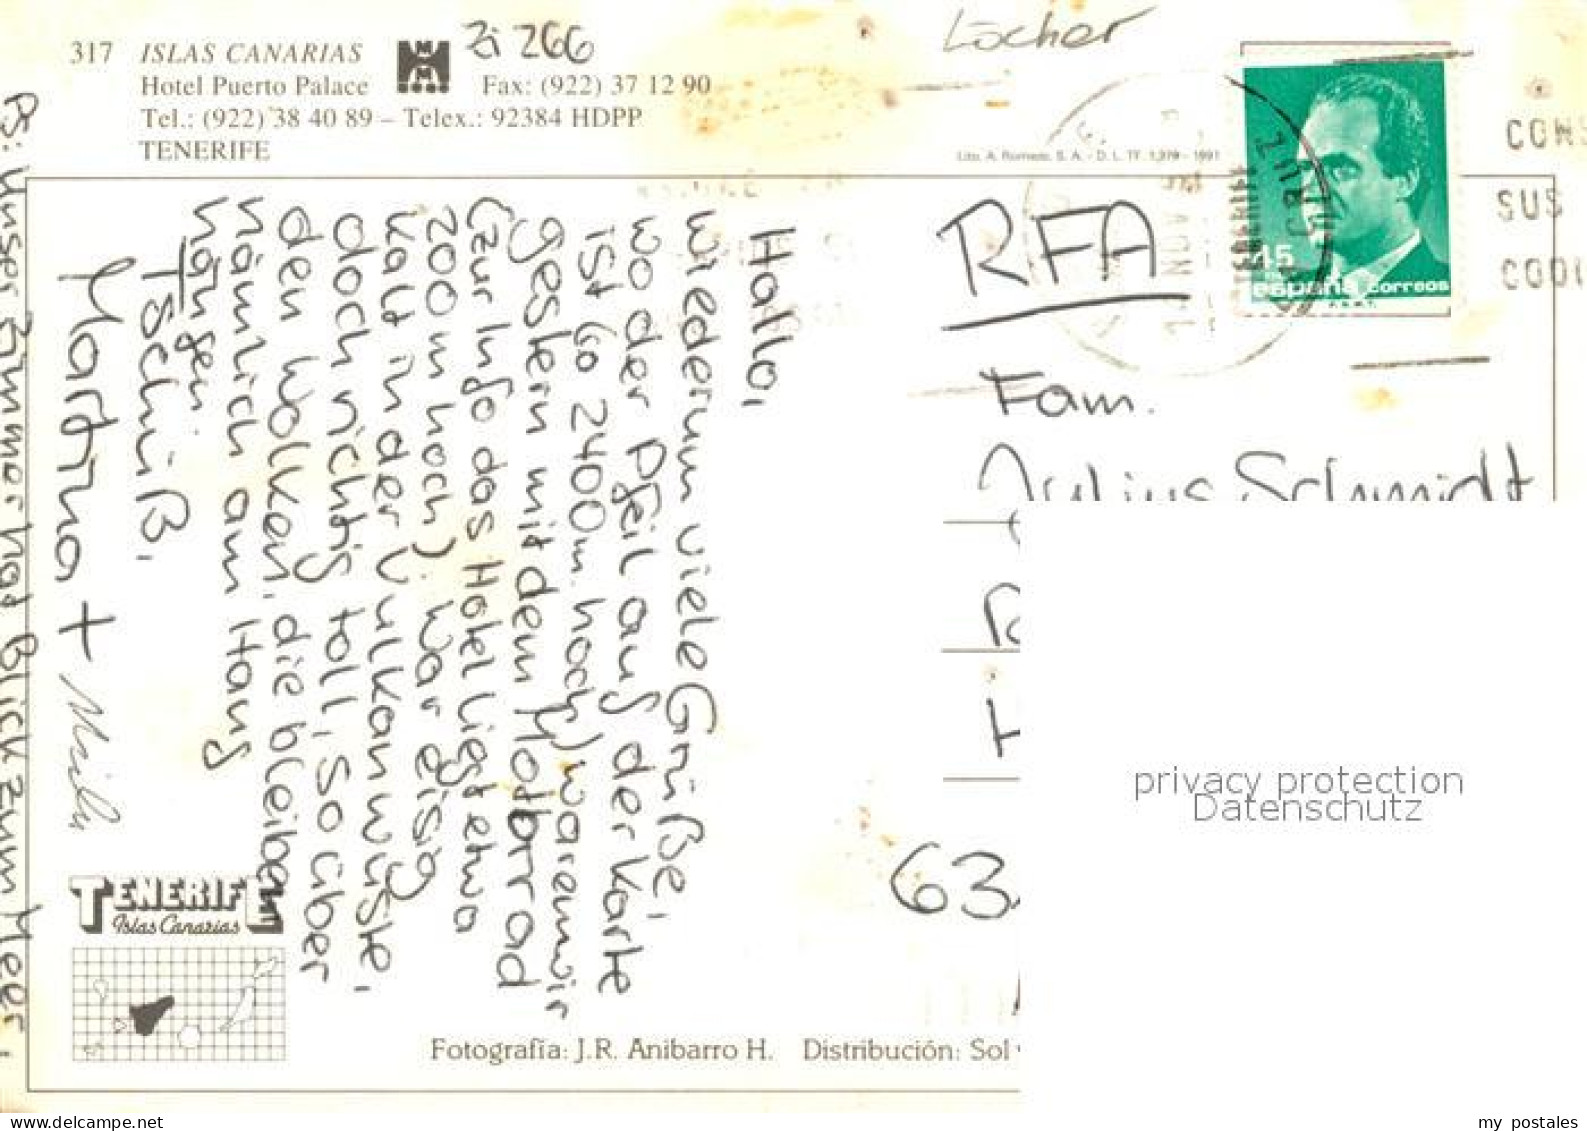 317 ISLAS CANARIAS
Zi 266
Hotel Puerto Palace Fax: (922) 37 12 90
Tel.: (922) 38 40 89 – Telex.: 92384 HDPP
TENERIFE
Löcher
Lito. A. Romero, S. A. - D. L. TF. 1,379 - 1991
CONS
SUS
CODI
NOV
TENERIFE
45
españa correos
RFA
Fam.
Julius Schmidt
63
Hallo,
wiederum viele Grüße,
wo der Pfeil auf der Karte
ist (so 2400m hoch) waren wir
gestern mit dem Motorrad
(zur Info das Hotel liegt etwa
200m hoch). War eisig
kalt in der Vulkanwüste,
doch richtig toll, so über
den Wolken, die bleiben
nämlich am Hang
hängen.
Tschüß,
Martina +
PS: Unser Zimmer hat Blick zum Meer.
TENERIFE
Islas Canarias
Fotografía: J.R. Anibarro H. Distribución: Sol
privacy protection
Datenschutz
www.delcampe.net
my_postales